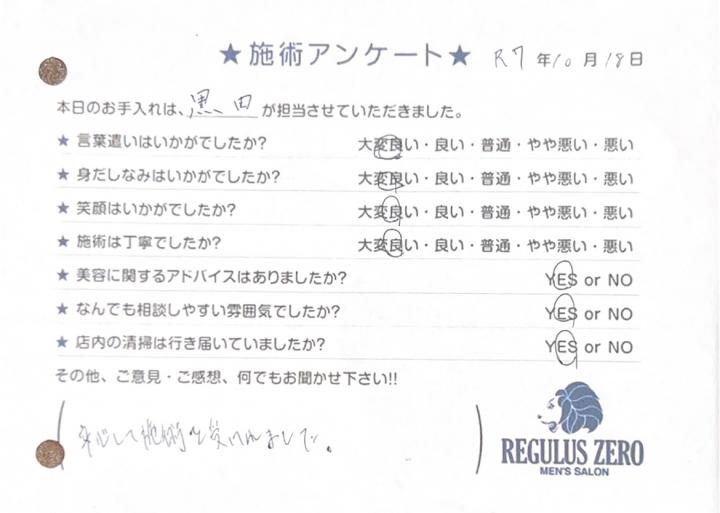 ★施術アンケート★ R7年10月18日
本日のお手入れは、黒田が担当させていただきました。
★ 言葉遣いはいかがでしたか? 大変良い・良い・普通・やや悪い・悪い
★ 身だしなみはいかがでしたか? 大変良い・良い・普通・やや悪い・悪い
★ 笑顔はいかがでしたか? 大変良い・良い・普通・やや悪い・悪い
★ 施術は丁寧でしたか? 大変良い・良い・普通・やや悪い・悪い
★ 美容に関するアドバイスはありましたか? YES or NO
★ なんでも相談しやすい雰囲気でしたか? YES or NO
★ 店内の清掃は行き届いていましたか? YES or NO
その他、ご意見・ご感想、何でもお聞かせ下さい!!
安心して施術を受けれました。
REGULUS ZERO
MEN'S SALON